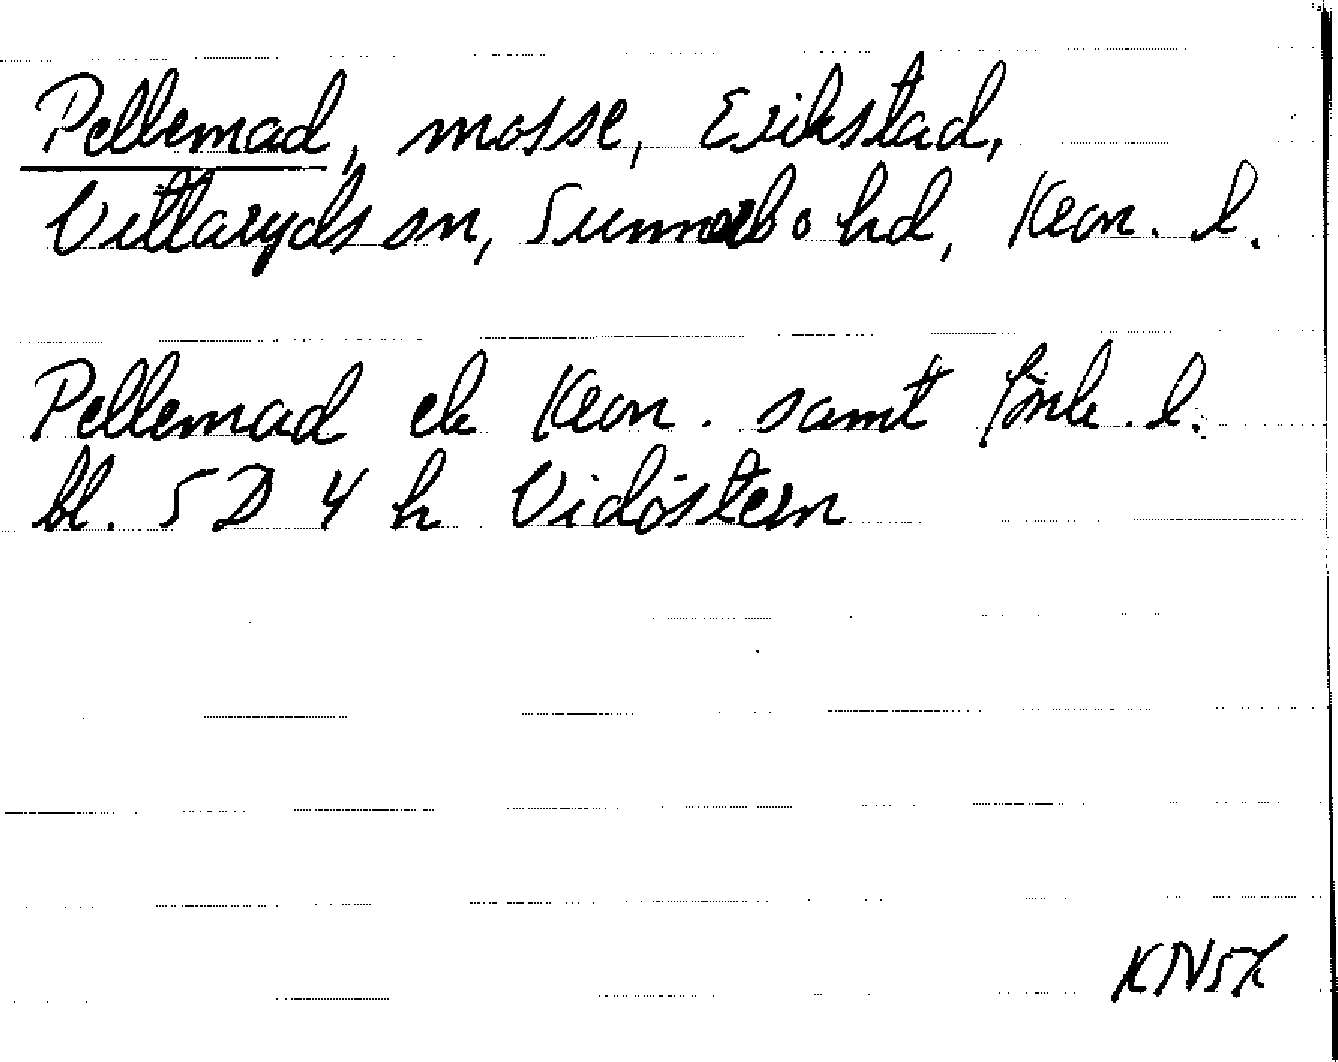 Pellemad, mosse, Erikstad,
Vittaryds sn, Sunnerbo hd, Kron. l.
Pellemad ek Kron. samt Jönk. l.
bl. 5 D 4 h Vidöstern
KN57